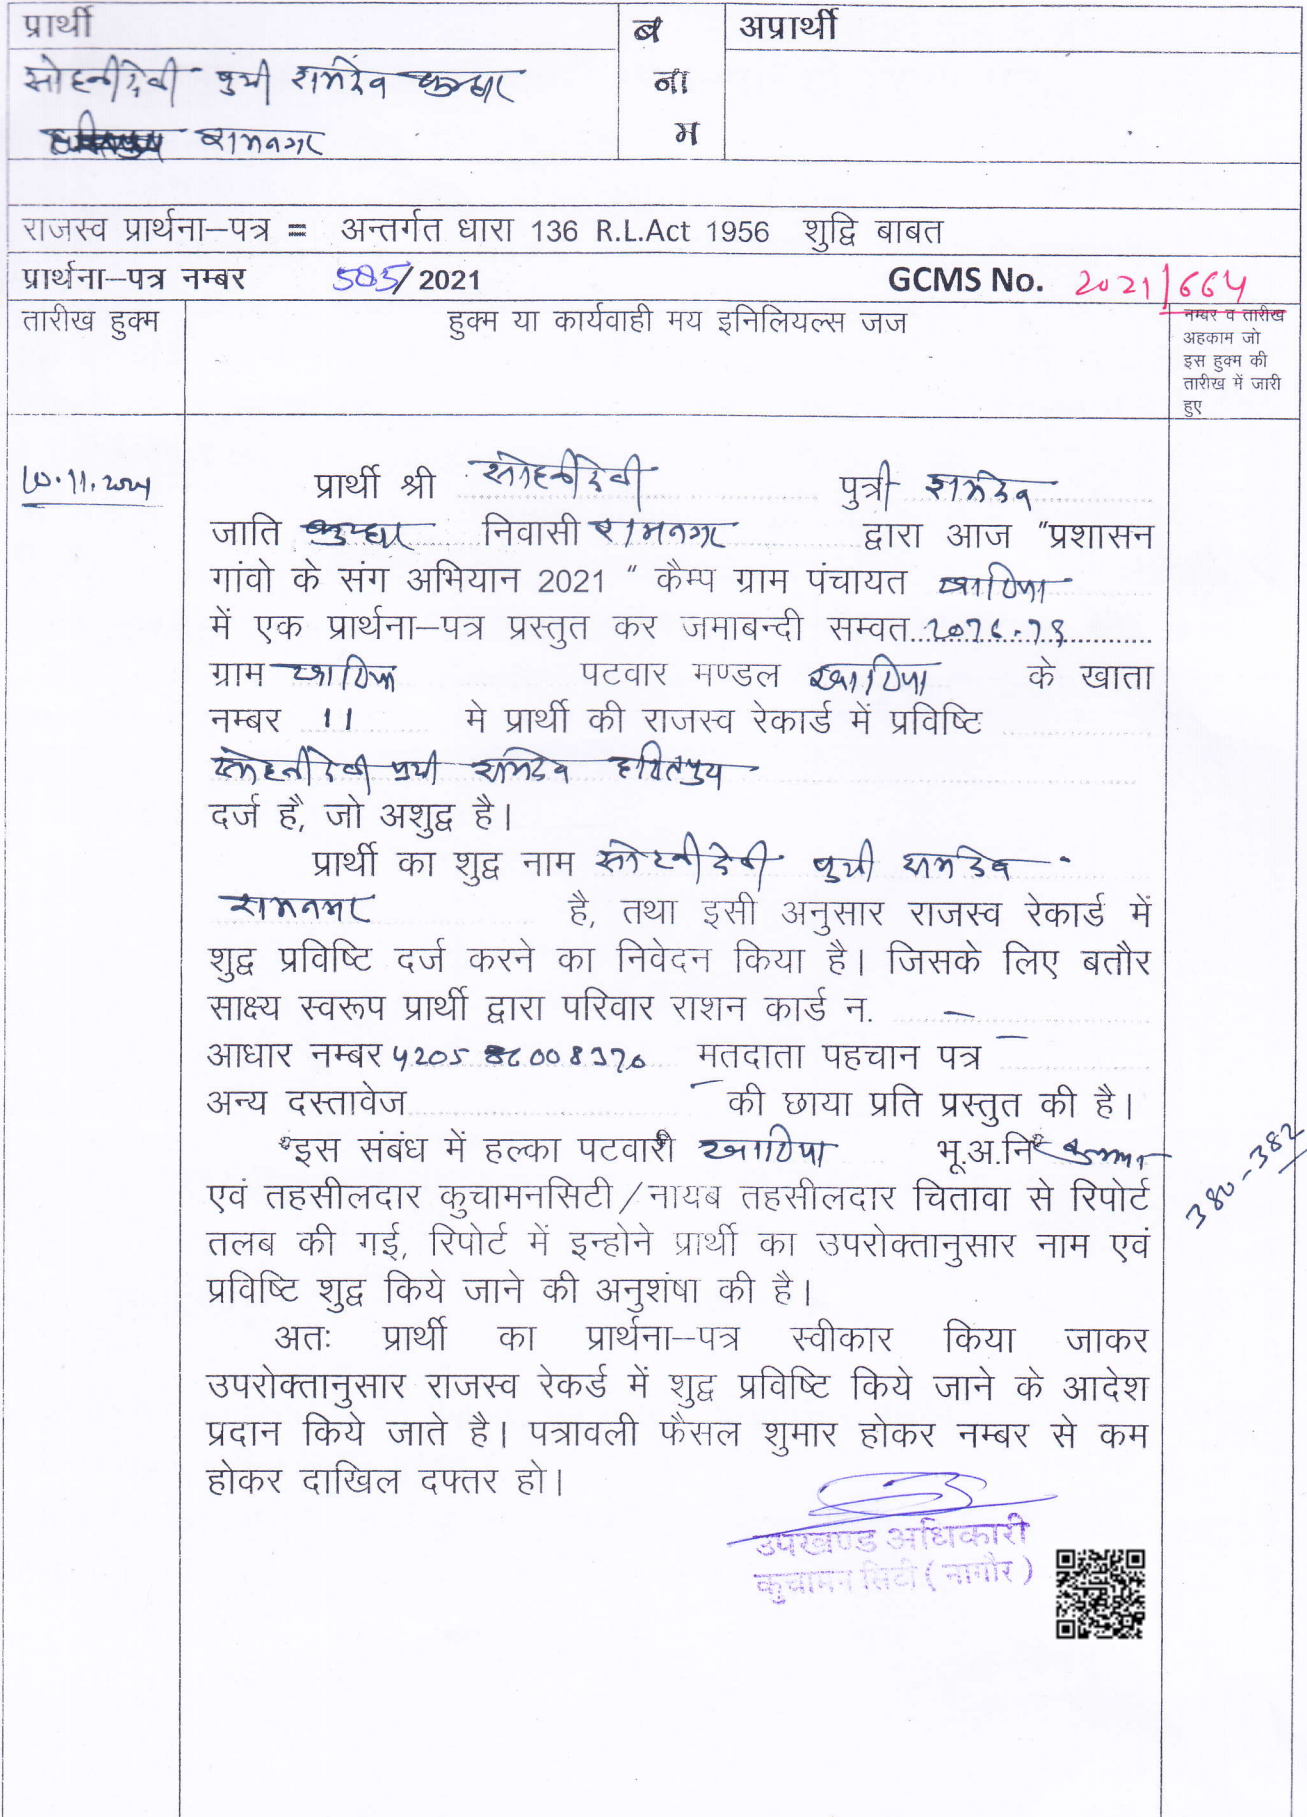 प्रार्थी
ब
ना
म
अप्रार्थी
सोहनीदेवी पुत्री रामदेव कुम्हार
रामनगर
राजस्व प्रार्थना–पत्र = अन्तर्गत धारा 136 R.L.Act 1956 शुद्वि बाबत
प्रार्थना–पत्र नम्बर 585/2021 GCMS No. 2021/664
तारीख हुक्म
हुक्म या कार्यवाही मय इनिलियल्स जज
नम्बर व तारीख
अहकाम जो
इस हुक्म की
तारीख में जारी
हुए
प्रार्थी श्री सोहनीदेवी पुत्री रामदेव
जाति कुम्हार निवासी रामनगर द्वारा आज "प्रशासन
गांवो के संग अभियान 2021 " कैम्प ग्राम पंचायत
में एक प्रार्थना–पत्र प्रस्तुत कर जमाबन्दी सम्वत
ग्राम पटवार मण्डल के खाता
नम्बर 11 मे प्रार्थी की राजस्व रेकार्ड में प्रविष्टि
सोहनीदेवी पुत्री रामदेव
दर्ज है, जो अशुद्व है।
प्रार्थी का शुद्व नाम सोहनीदेवी पुत्री रामदेव
रामनगर है, तथा इसी अनुसार राजस्व रेकार्ड में
शुद्व प्रविष्टि दर्ज करने का निवेदन किया है। जिसके लिए बतौर
साक्ष्य स्वरूप प्रार्थी द्वारा परिवार राशन कार्ड न. –
आधार नम्बर मतदाता पहचान पत्र –
अन्य दस्तावेज – की छाया प्रति प्रस्तुत की है।
इस संबंध में हल्का पटवारी भू.अ.नि
एवं तहसीलदार कुचामनसिटी/नायब तहसीलदार चितावा से रिपोर्ट
तलब की गई, रिपोर्ट में इन्होने प्रार्थी का उपरोक्तानुसार नाम एवं
प्रविष्टि शुद्व किये जाने की अनुशंषा की है।
380-382
अतः प्रार्थी का प्रार्थना–पत्र स्वीकार किया जाकर
उपरोक्तानुसार राजस्व रेकर्ड में शुद्व प्रविष्टि किये जाने के आदेश
प्रदान किये जाते है। पत्रावली फैसल शुमार होकर नम्बर से कम
होकर दाखिल दफ्तर हो।
उपखण्ड अधिकारी
कुचामन सिटी (नागौर)